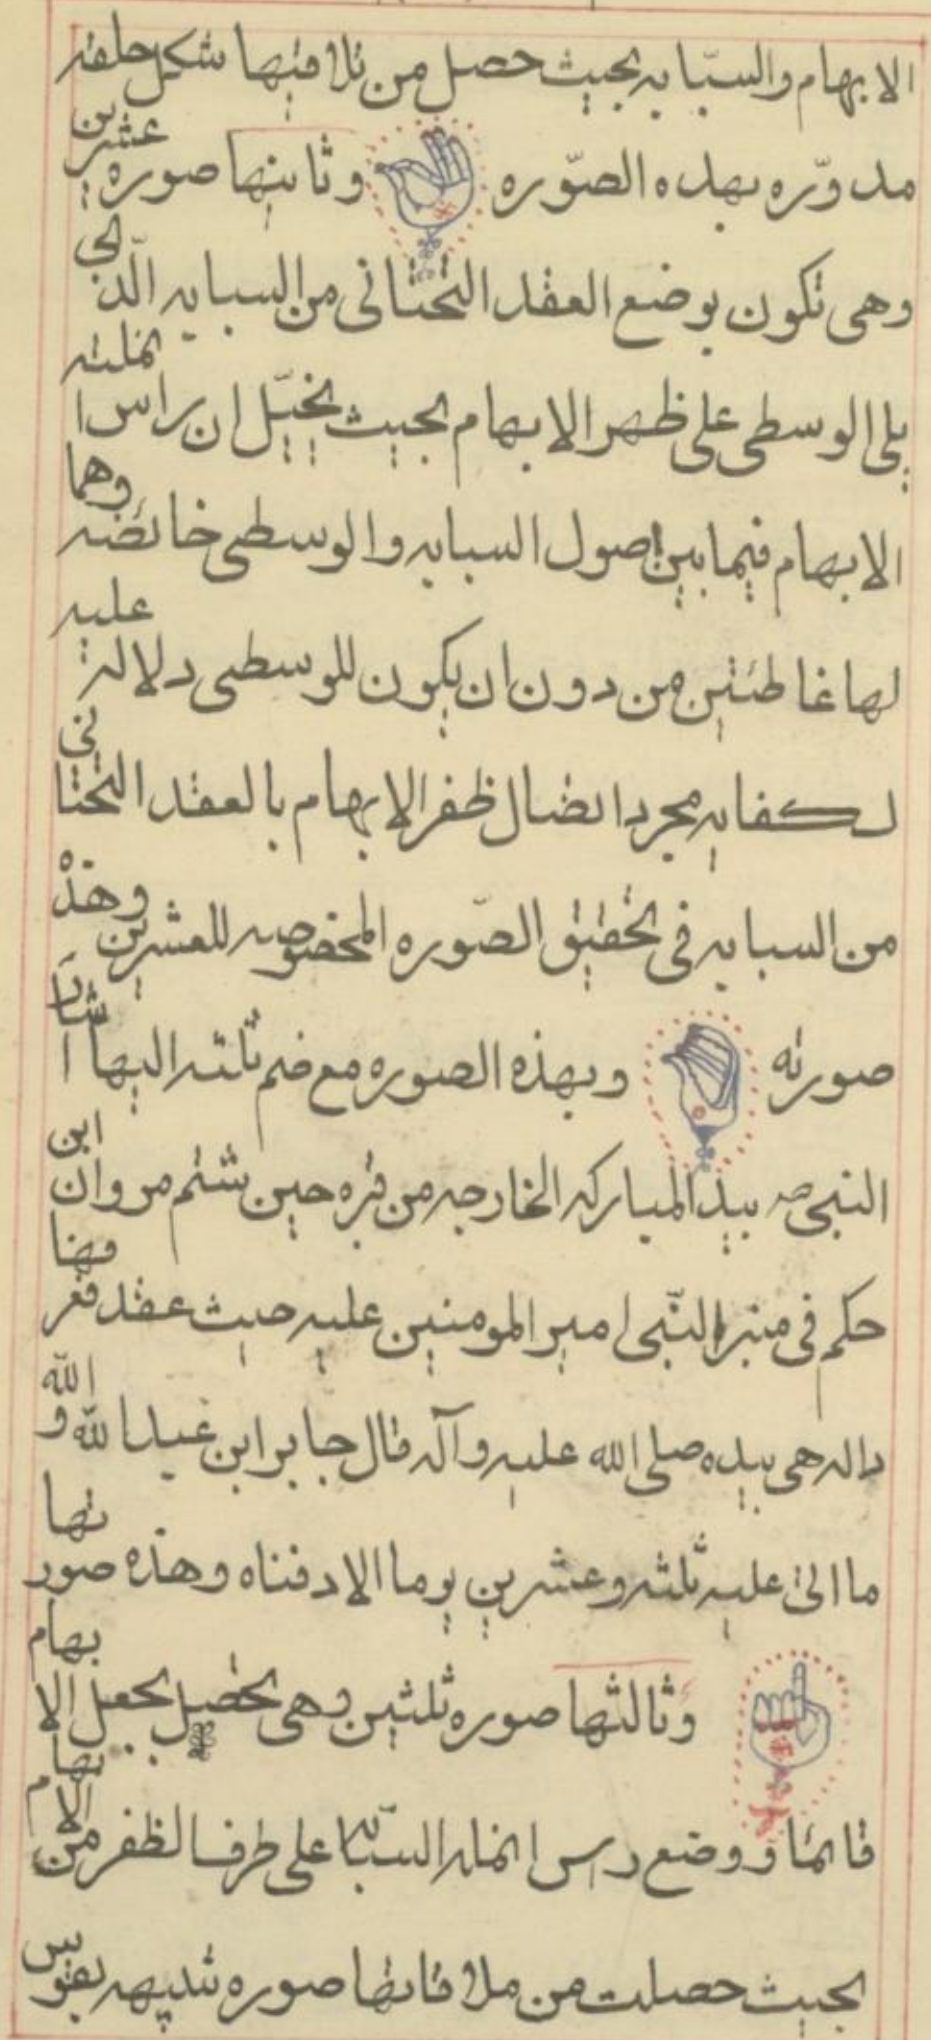 الابهام والسبّابه بحيث حصل من تلاقيها شكل حلقه
مدوّره بهذه الصّوره وثانيها صوره عشرين
وهى تكون بوضع العقد التحتانى من السبابه الّذى
يلى الوسطى على ظهر الابهام بحيث يخيّل ان براس انملته
الابهام فيما بين اصول السبابه والوسطى وهما
لها غا من دون ان يكون للوسطى دلالة عليه
لكفايه مجرد اتصال ظفر الابهام بالعقد التحتانى
من السبابه فى تحقيق الصّوره المخصوصه للعشرين وهذه
صورته وبهذه الصوره مع ضم ثلثه اليها اشار
النبى صه بيد المباركه الخارجه من قبره حين شتم مروان ابن
حكم فى منبر النّبى امير المومنين عليه حيث عقد
هى بيده صلى الله عليه وآله قال جابر ابن عبد الله و الله
ما عليه ثلثه وعشرين يوما الا دفناه وهذه صورتها
وثالثها صوره ثلثين وهى تحصل بجعل الابهام
قائما ووضع راس انمله السبّا على طرف الظفر من الابهام
بحيث حصلت من ملاقاتها صوره شبيهه بقوس